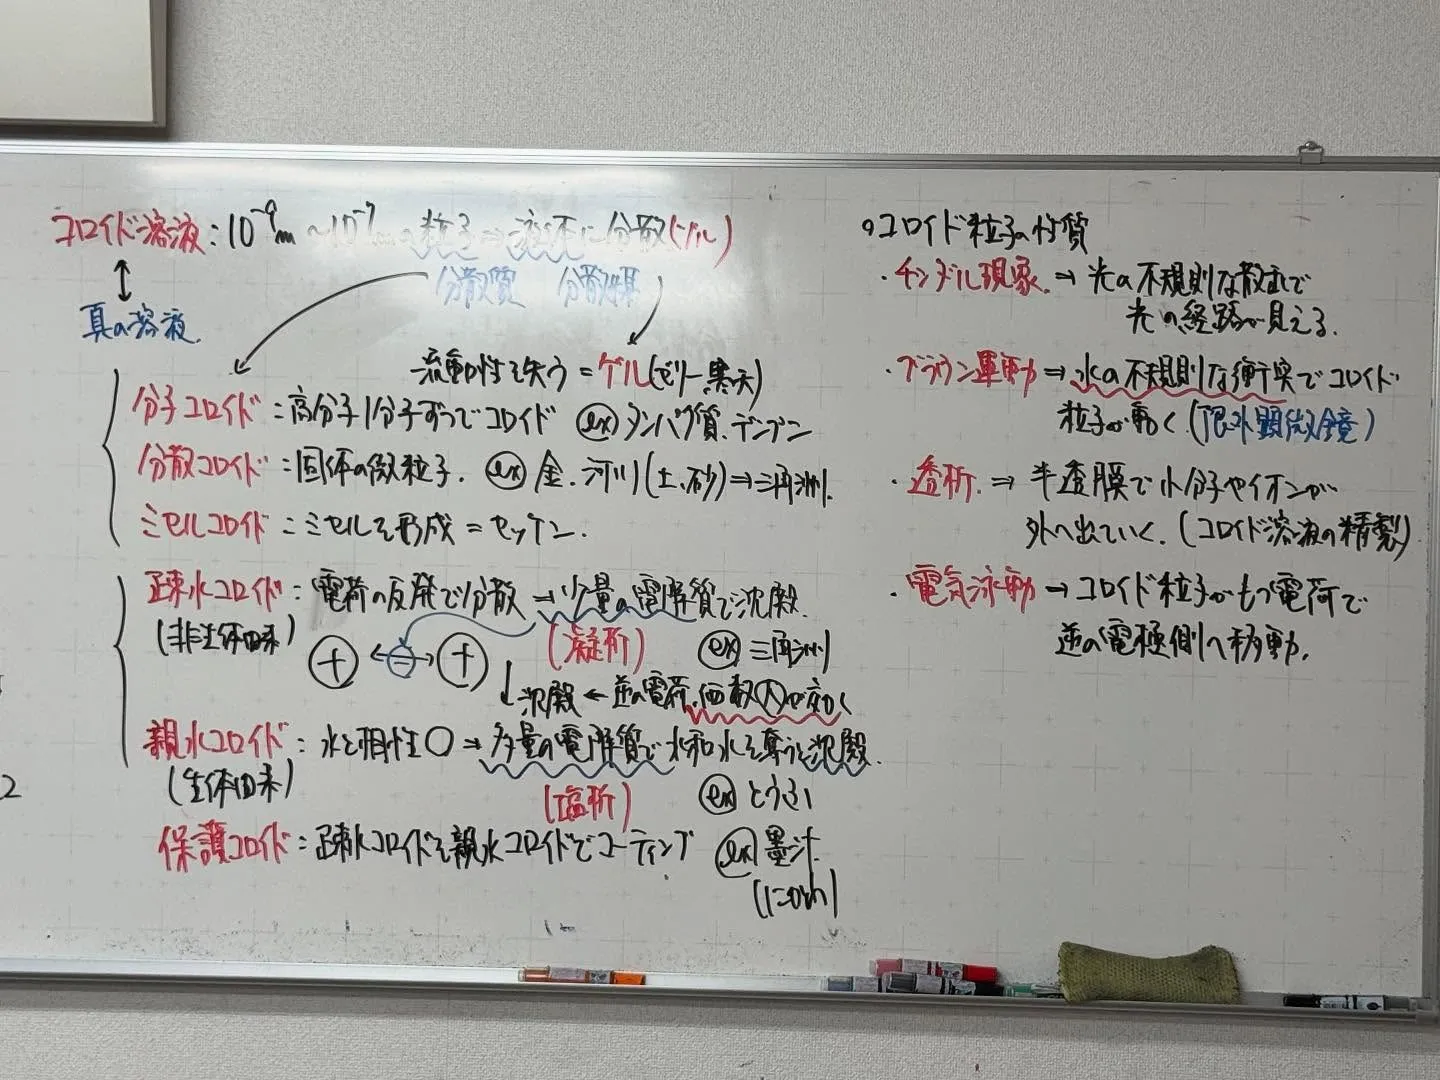 コロイド溶液：10⁻⁹m～10⁻⁷mの粒子⇒液体に分散(ゾル)
分散質 分散媒
↕
真の溶液
流動性を失う＝ゲル(ゼリー、寒天)
分子コロイド：高分子1分子ずつでコロイド ex タンパク質、デンプン
分散コロイド：固体の微粒子. ex 金、河川(土、砂)⇒三角洲.
ミセルコロイド：ミセルを形成＝セッケン.
疎水コロイド：電荷の反発で分散⇒少量の電解質で沈殿.
(非生体由来)
(凝析) ex 三角洲
＋ ←－→ ＋
↓沈殿←逆の電荷、価数大が効く
親水コロイド：水と相性○⇒多量の電解質で水和水を奪うと沈殿.
(生体由来)
(塩析) ex とうふ
保護コロイド：疎水コロイドを親水コロイドでコーティング ex 墨汁.
(にかわ)
2
○コロイド粒子の性質
・チンダル現象.⇒光の不規則な散乱で
光の経路が見える.
・ブラウン運動⇒水の不規則な衝突でコロイド
粒子が動く.(限外顕微鏡)
・透析.⇒半透膜で小分子やイオンが
外へ出ていく.(コロイド溶液の精製)
・電気泳動⇒コロイド粒子がもつ電荷で
逆の電極側へ移動.